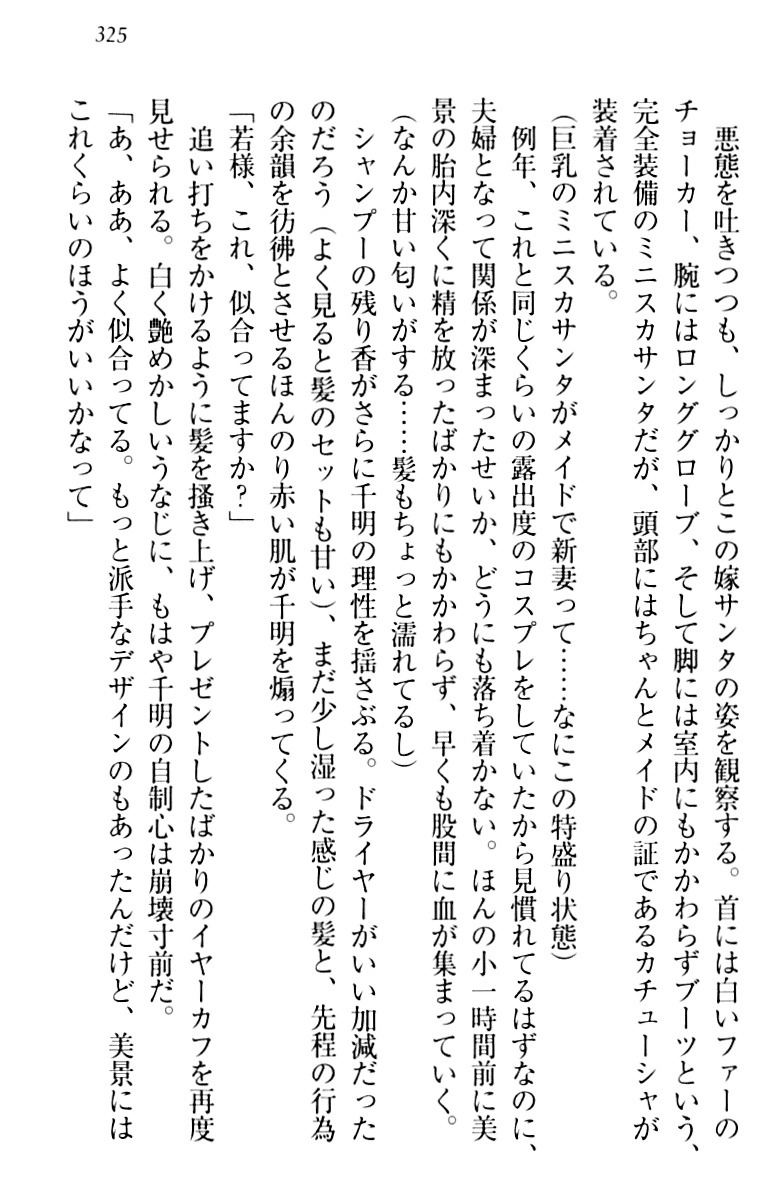 325
悪態を吐きつつも、しっかりとこの嫁サンタの姿を観察する。首には白いファーの
チョーカー、腕にはロンググローブ、そして脚には室内にもかかわらずブーツという、
完全装備のミニスカサンタだが、頭部にはちゃんとメイドの証であるカチューシャが
装着されている。
(巨乳のミニスカサンタがメイドで新妻って……なにこの特盛り状態)
例年、これと同じくらいの露出度のコスプレをしていたから見慣れてるはずなのに、
夫婦となって関係が深まったせいか、どうにも落ち着かない。ほんの小一時間前に美
景の胎内深くに精を放ったばかりにもかかわらず、早くも股間に血が集まっていく。
(なんか甘い匂いがする……髪もちょっと濡れてるし)
シャンプーの残り香がさらに千明の理性を揺さぶる。ドライヤーがいい加減だった
のだろう(よく見ると髪のセットも甘い)、まだ少し湿った感じの髪と、先程の行為
の余韻を彷彿とさせるほんのり赤い肌が千明を煽ってくる。
「若様、これ、似合ってますか?」
追い打ちをかけるように髪を掻き上げ、プレゼントしたばかりのイヤーカフを再度
見せられる。白く艶めかしいうなじに、もはや千明の自制心は崩壊寸前だ。
「あ、ああ、よく似合ってる。もっと派手なデザインのもあったんだけど、美景には
これくらいのほうがいいかなって」